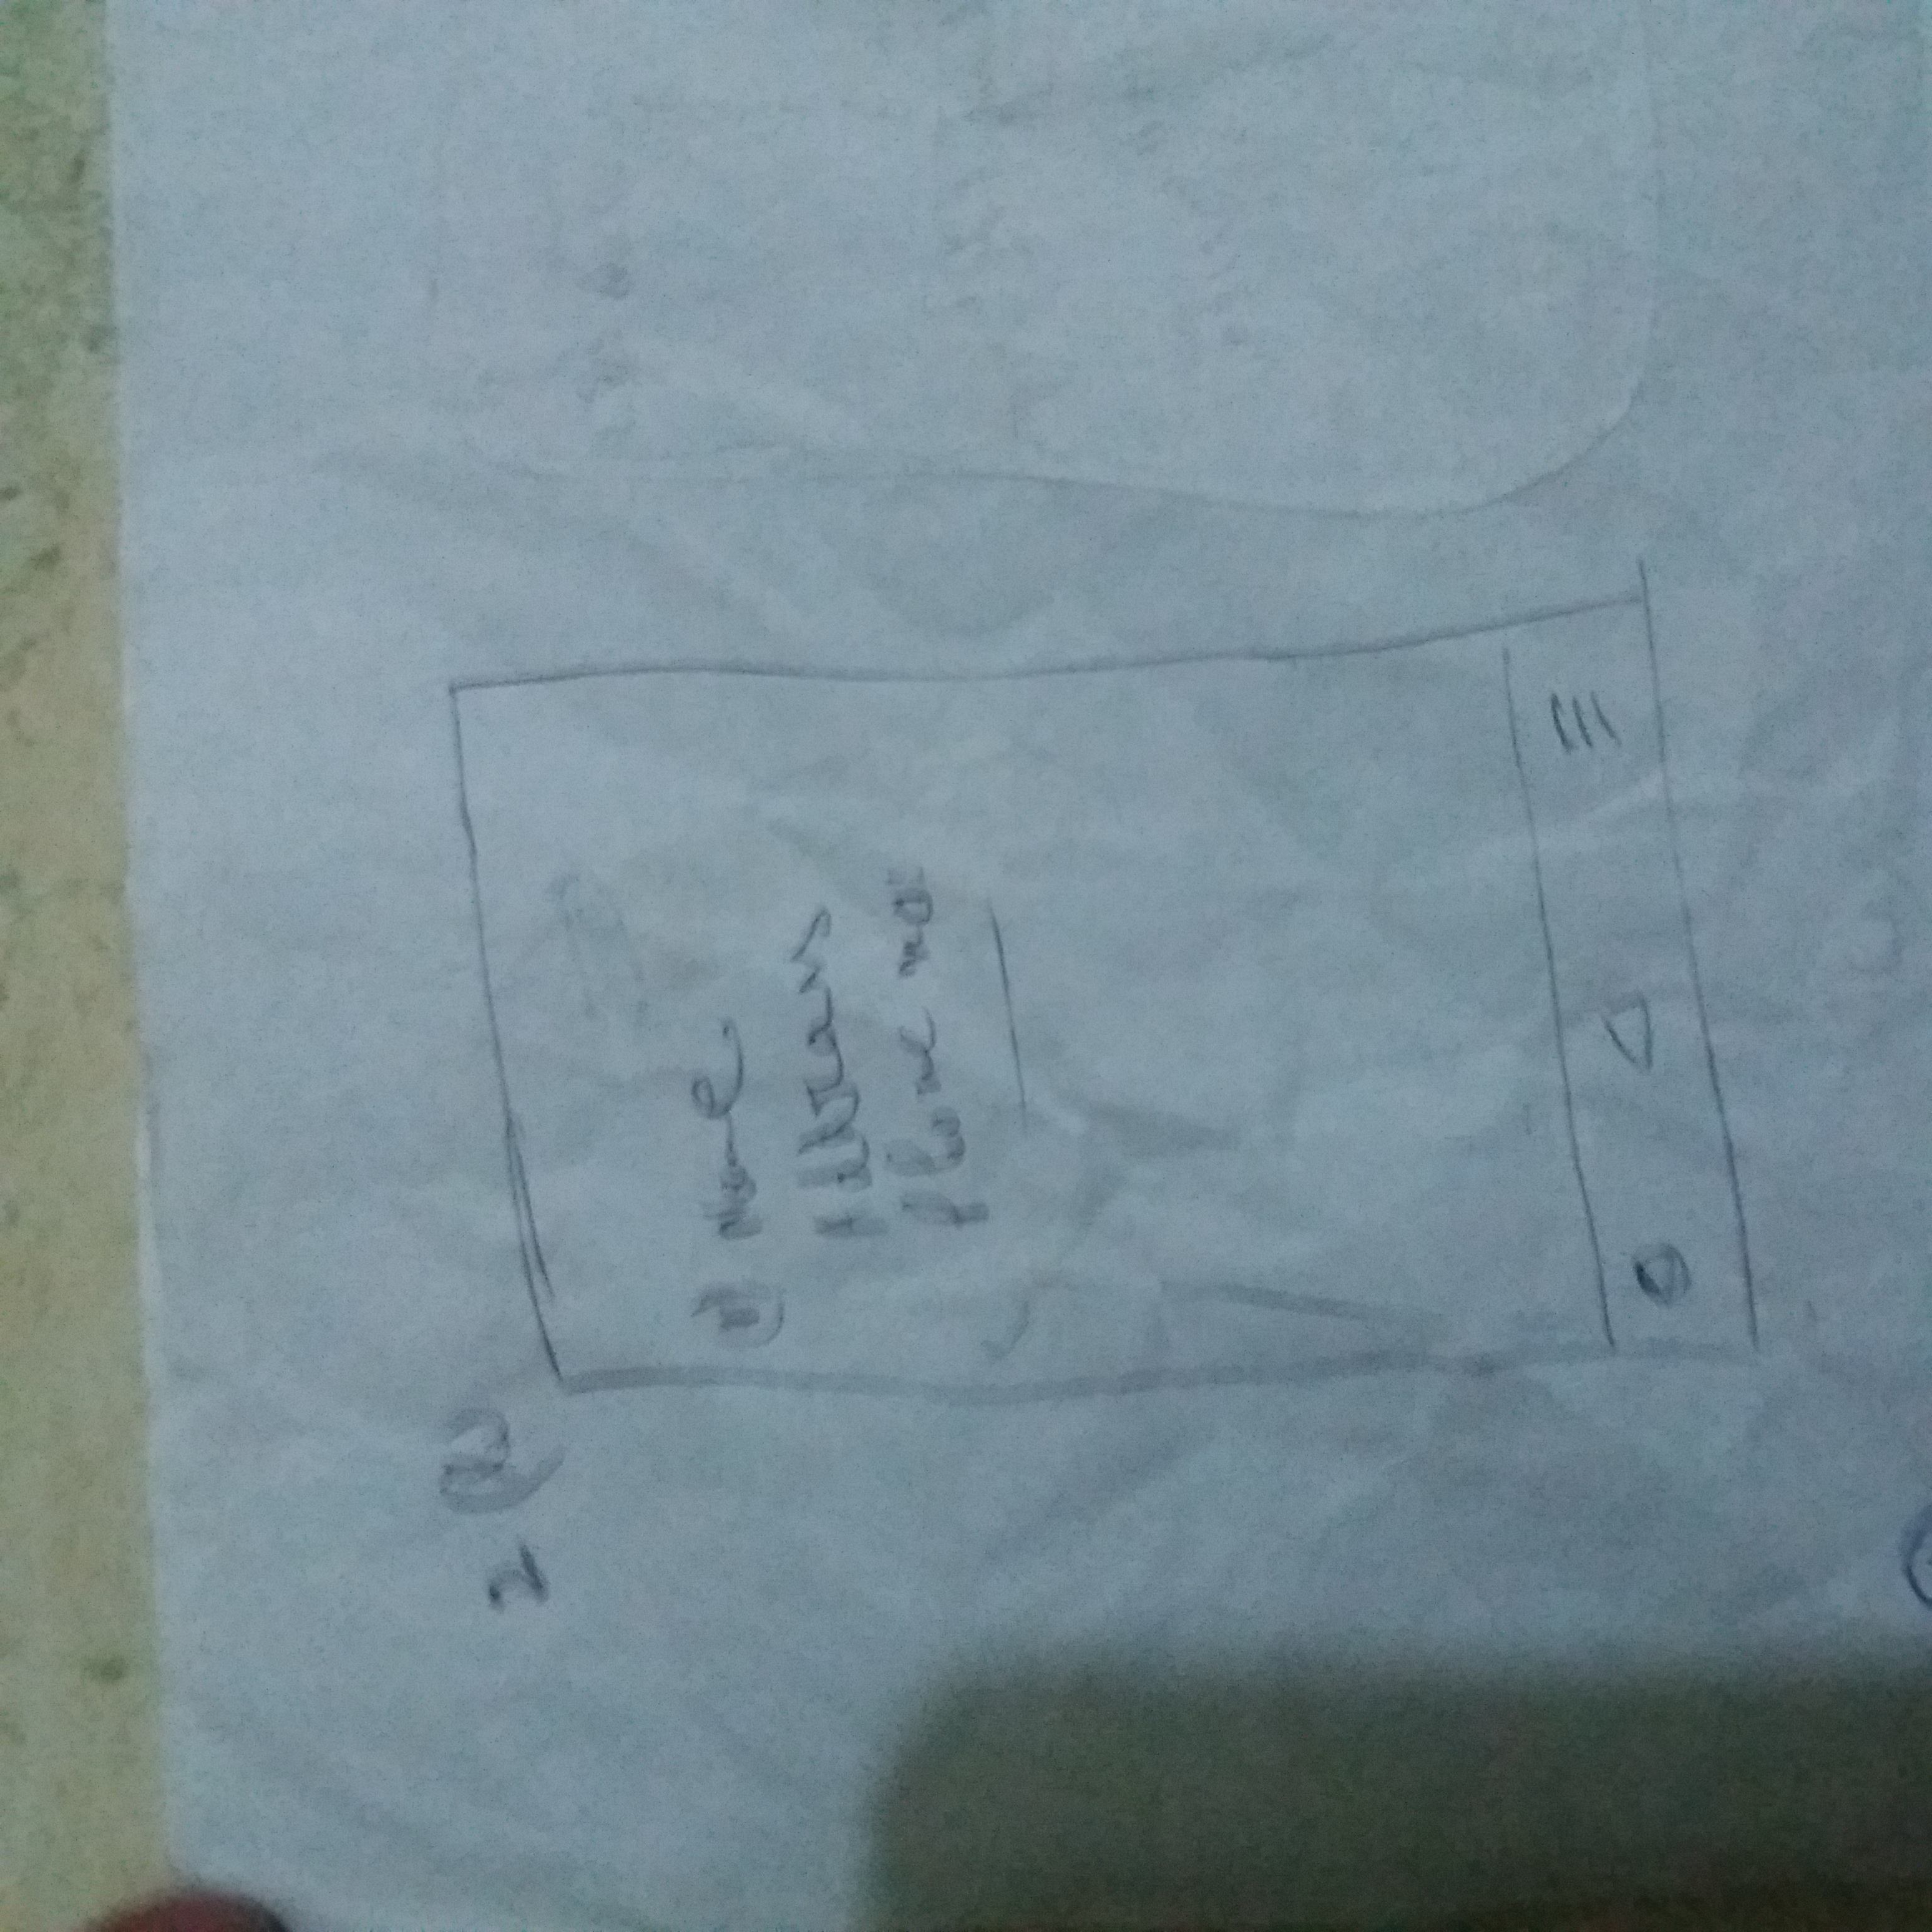 2
(1) Name.
Address
Phone no: